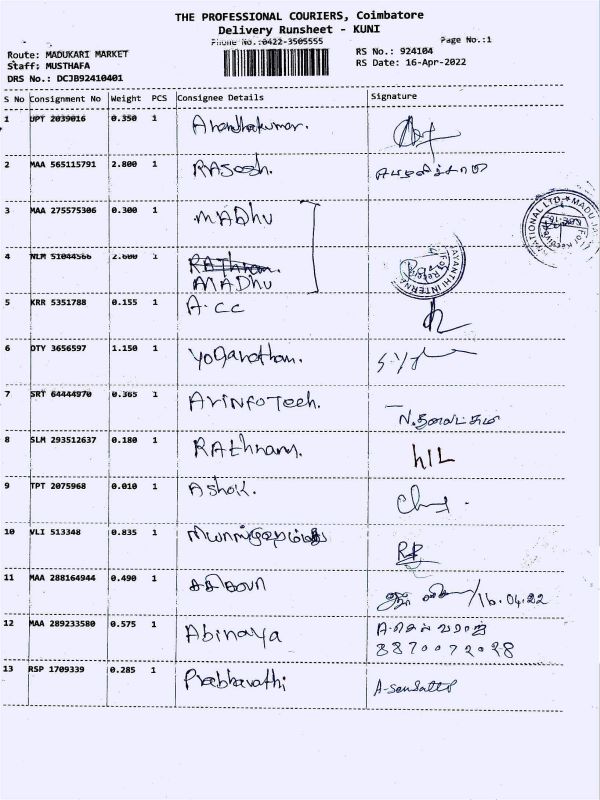 THE PROFESSIONAL COURIERS, Coimbatore
Delivery Runsheet - KUNI
Phone No.:0422-3505555
Page No.:1
Route: MADUKARI MARKET
RS No.: 924104
Staff: MUSTHAFA
RS Date: 16-Apr-2022
DRS No.: DCJB92410401
S No Consignment No Weight PCS Consignee Details Signature
1 UPT 2039016 0.350 1 Anandhakumar.
2 MAA 565115791 2.800 1
3 MAA 275575306 0.300 1 MADhu
4 NLM 51044566 2.600 1
MADhu
5 KRR 5351788 0.155 1 A.CC
6 OTY 3656597 1.150 1 Yoganathan.
7 SRT 64444970 0.365 1 ArinfoTech.
8 SLM 293512637 0.180 1 RAthnam.
9 TPT 2075968 0.010 1 Ashok.
10 VLI 513348 0.835 1
11 MAA 288164944 0.490 1 /16.04.22
12 MAA 289233580 0.575 1 Abinaya
8870072028
13 RSP 1709339 0.285 1 Prabhavathi